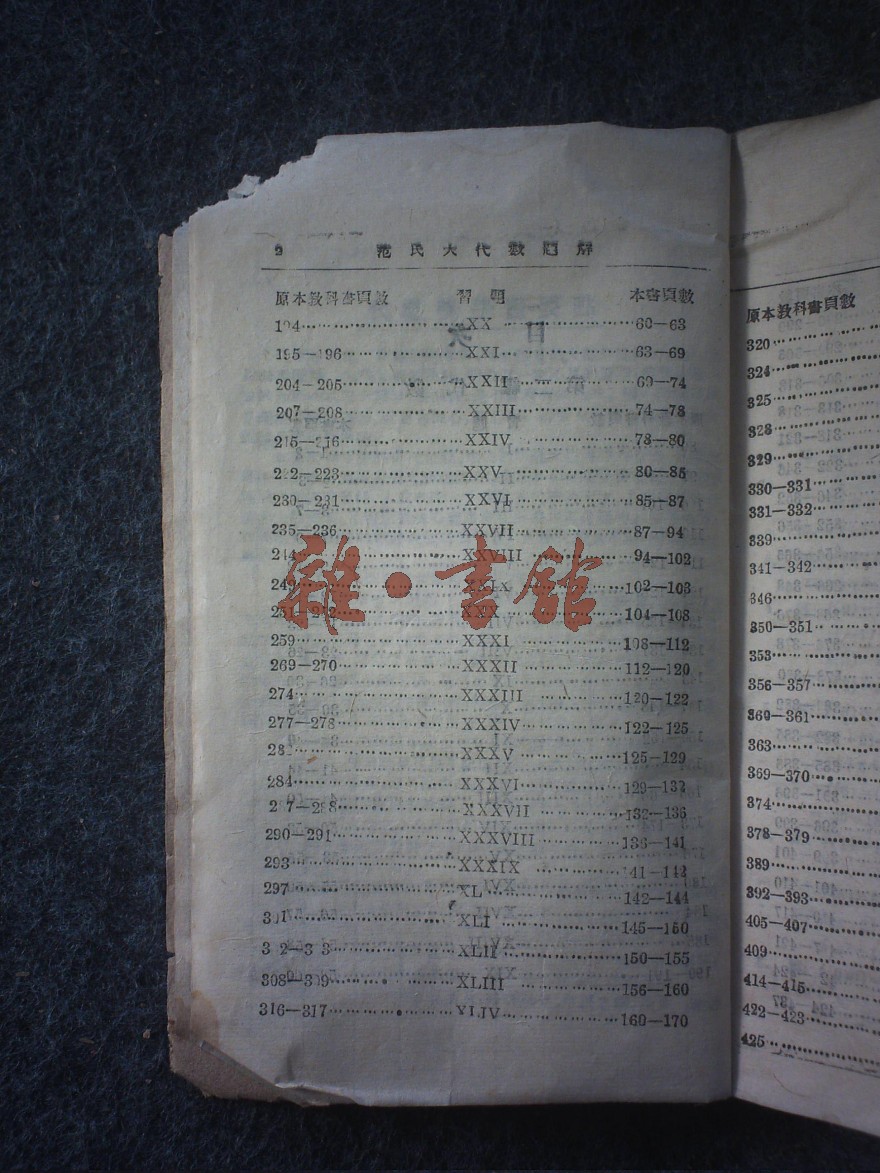 2 范氏大代數題解
原本教科書頁數 習題 本書頁數
194 XX 60—63
195—196 XXI 63—69
204—205 XXII 69—74
207—208 XXIII 74—78
215—216 XXIV 78—80
222—223 XXV 80—85
230—231 XXVI 85—87
235—236 XXVII 87—94
244 XXVIII 94—102
249 XXIX 102—103
251—252 XXX 104—108
259 XXXI 108—112
269—270 XXXII 112—120
274 XXXIII 120—122
277—278 XXXIV 122—125
XXXV 125—129
284 XXXVI 129—132
287—288 XXXVII 132—136
290—291 XXXVIII 136—141
293 XXXIX 141—142
297 XL 142—144
301 XLI 145—150
302—303 XLII 150—155
308—309 XLIII 156—160
316—317 XLIV 160—170
雜·書館
原本教科書頁數
320
324
325
328
329
330—331
331—332
339
341—342
346
350—351
353
356—357
360—361
363
369—370
374
378—379
389
392—393
405—407
409
414—415
422—423
425